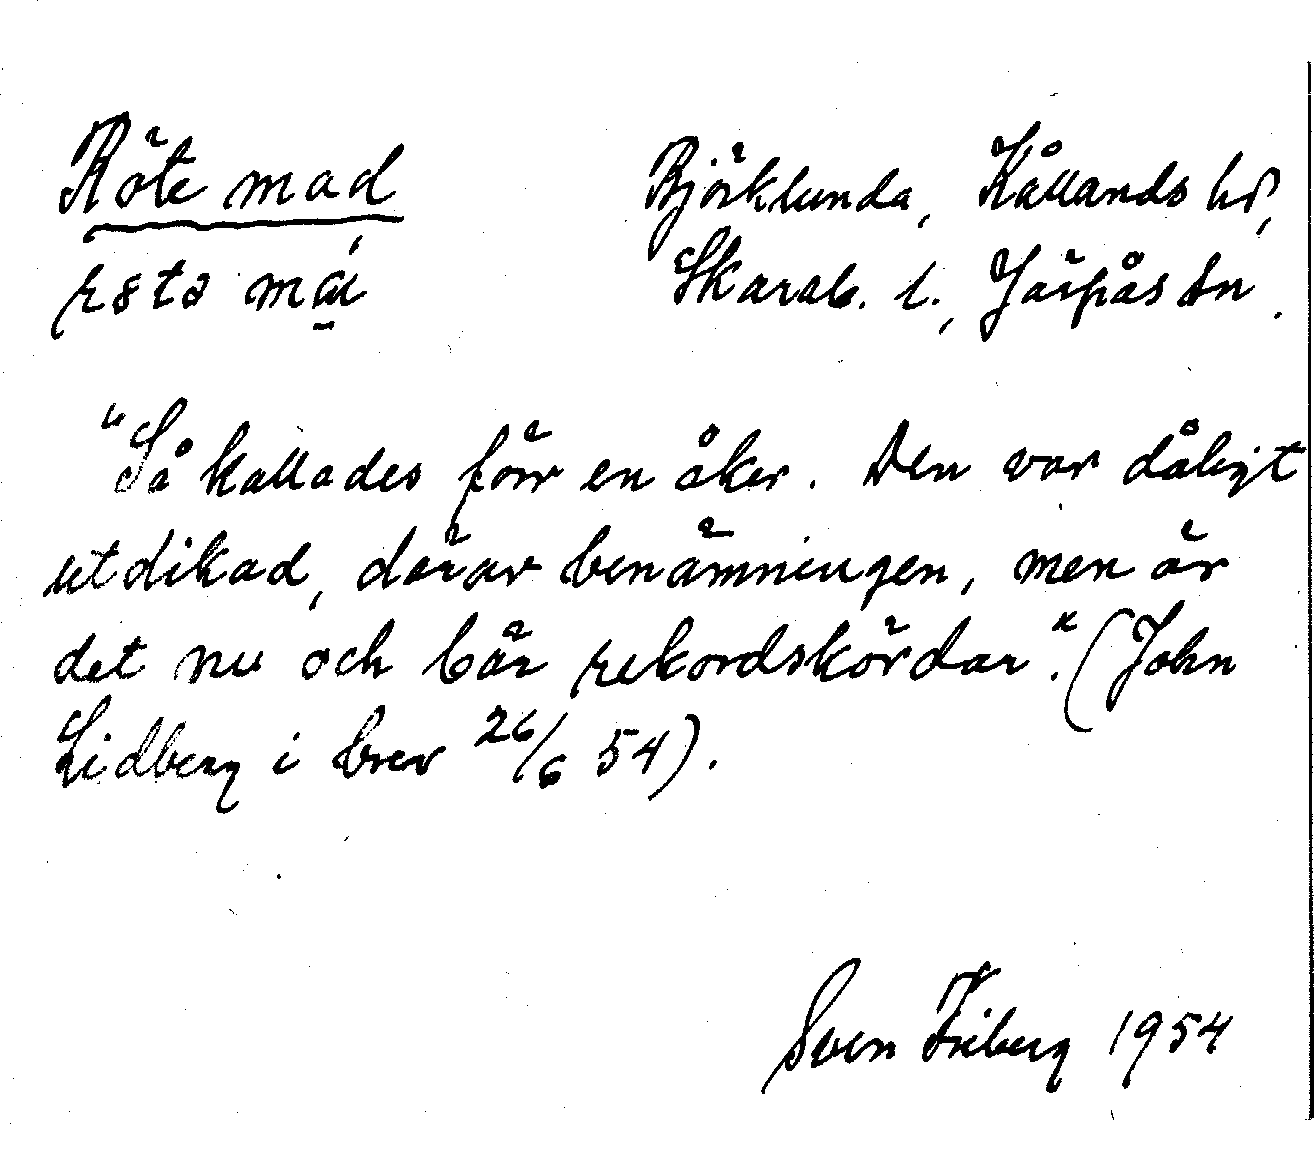 Röte mad
Björklunda, Kållands hd,
Skarab. l., Järpås sn.
"Så kallades förr en åker. Den var dåligt
utdikad, därav benämningen, men är
det nu och bär rekordskördar". (John
Lidberg i brev 26/6 54).
Sven Friberg 1954